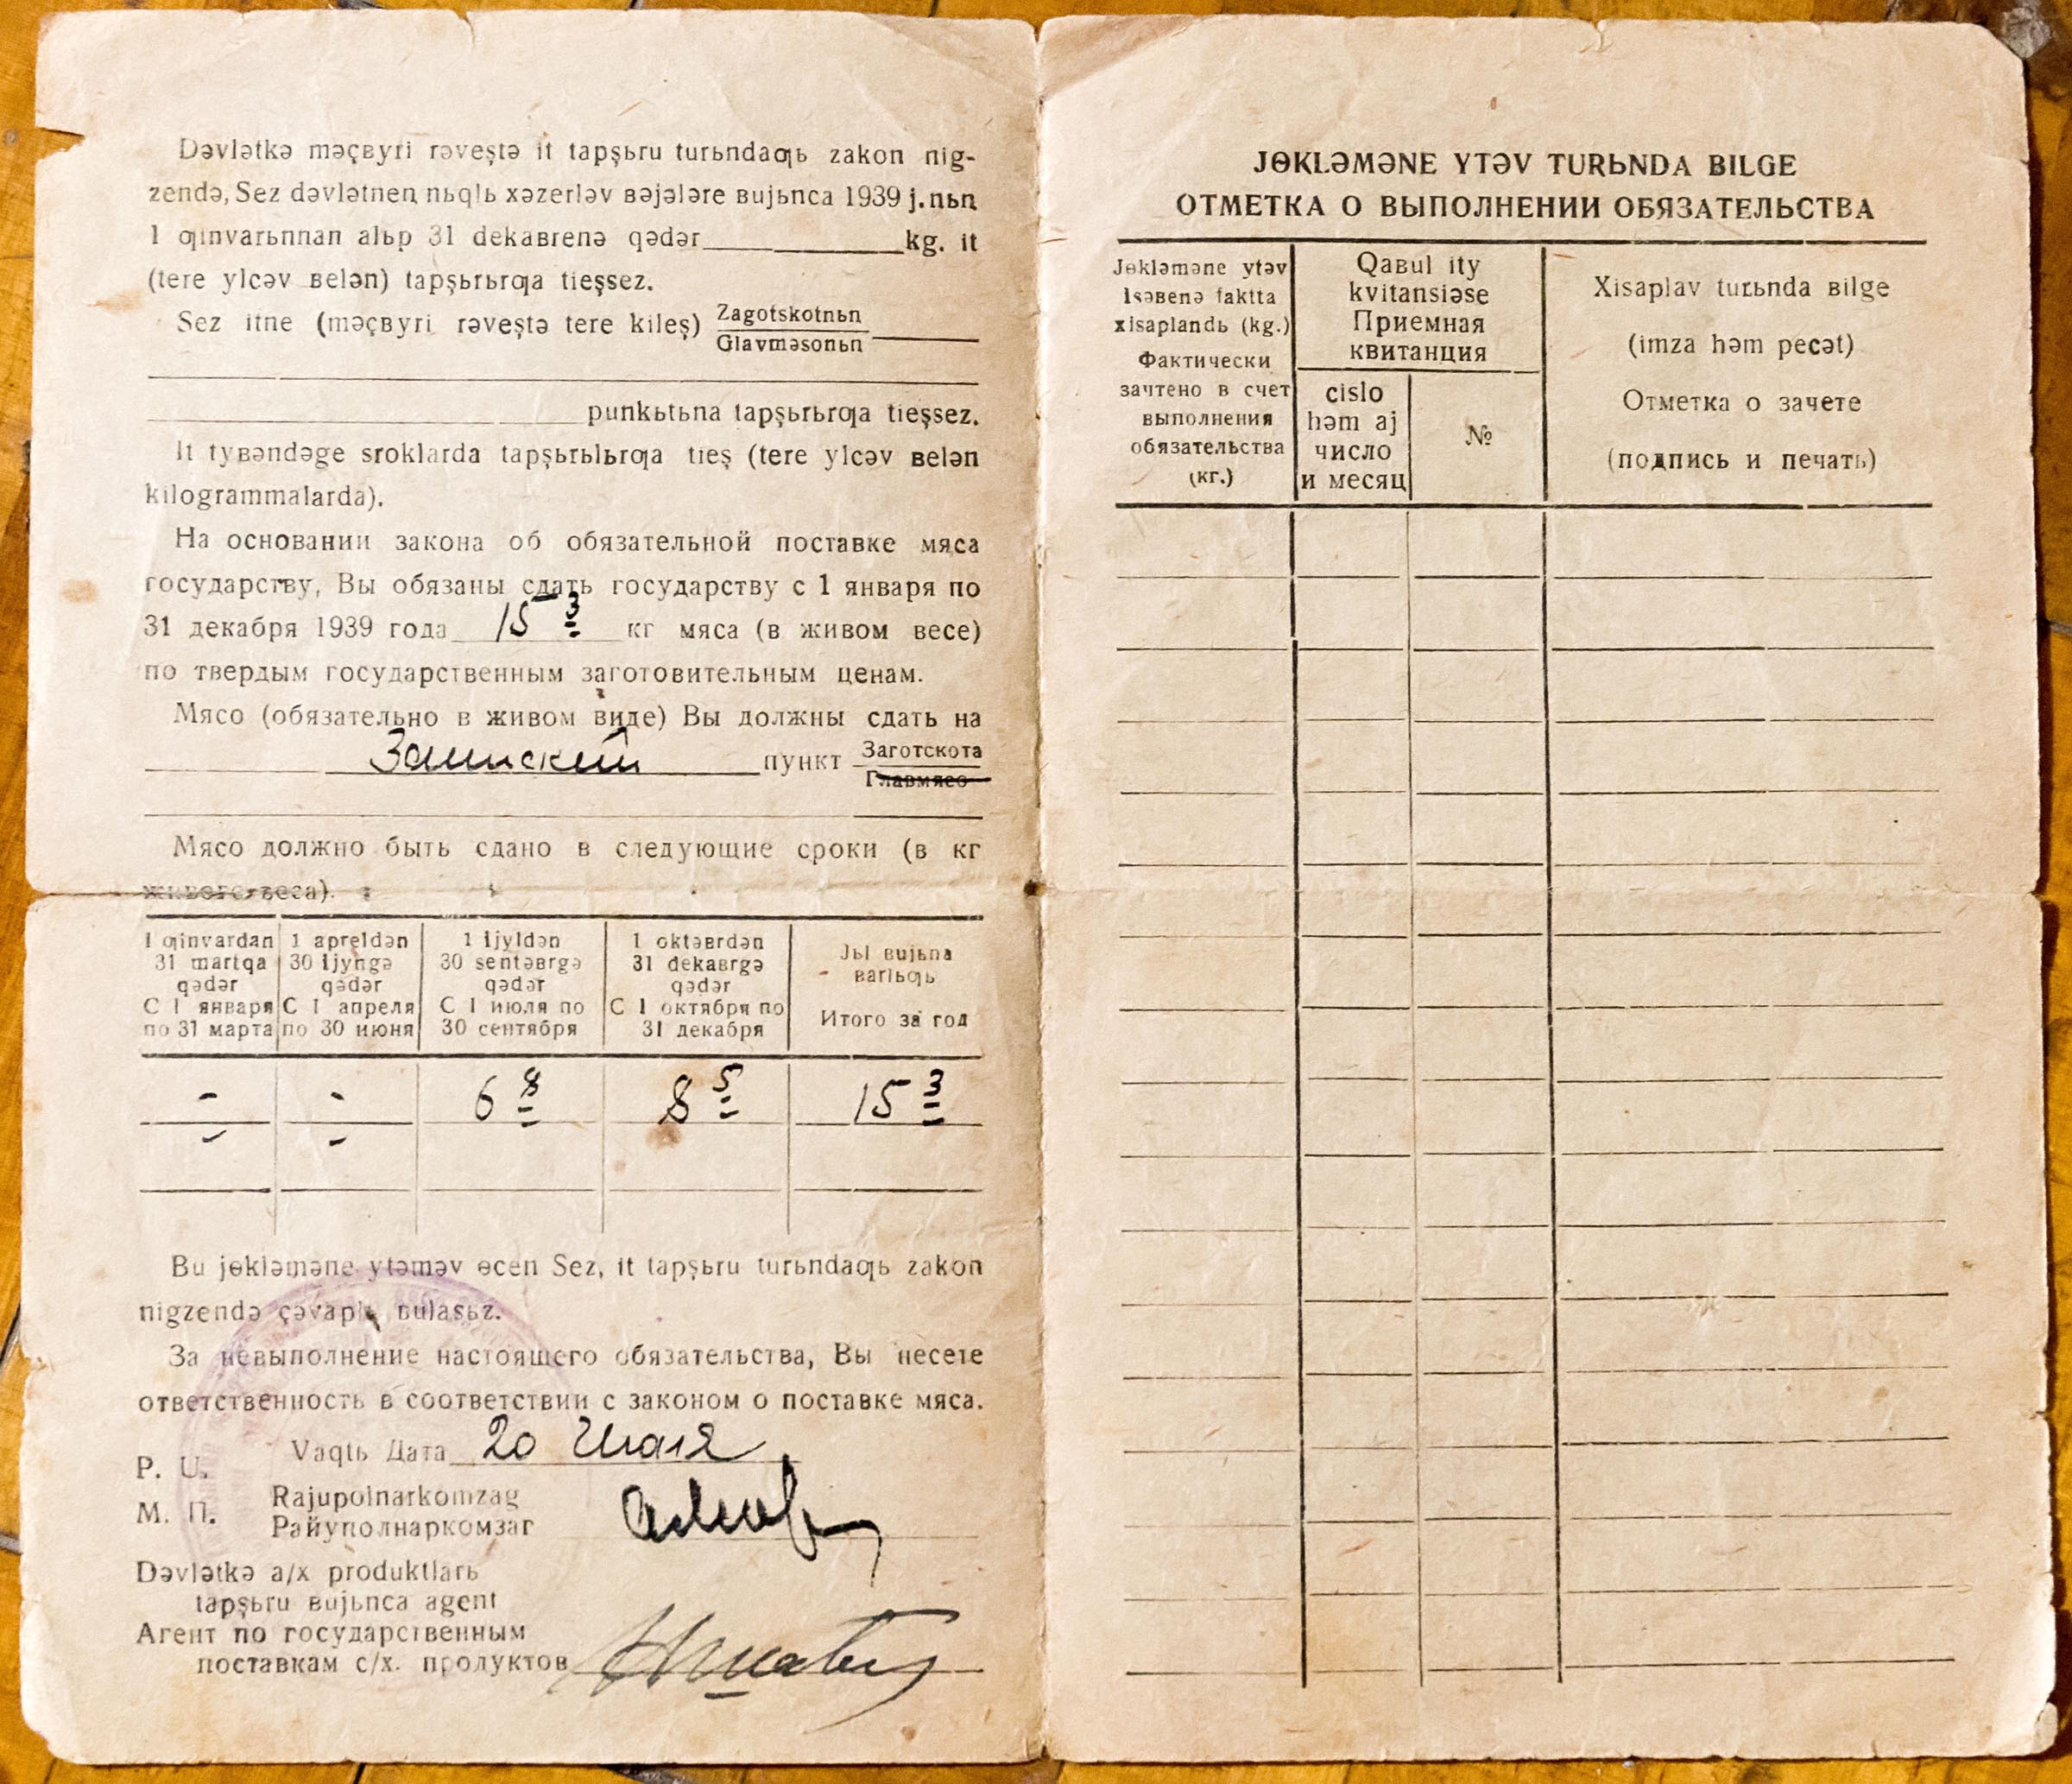 Dəvlətkə məçвyri rəveştə it tapşьru turьndaƣь zakon nig-
zendə, Sez dəvlətnen nьqlь xəzerləv вəjələre вujьnca 1939 j. nьn
1 ƣinvarьnnan alьp 31 dekaвrenə qədər kg. it
(tere ylcəv вelən) tapşьrьrƣa tieşsez.
Sez itne (məçвyri rəveştə tere kileş) Zagotskotnьn
Glavməsonьn
punkьtьna tapşьrьrƣa tieşsez.
It tyвəndəge sroklarda tapşьrьlьrƣa tieş (tere ylcəv вelən
kilogrammalarda).
На основании закона об обязательной поставке мяса
государству, Вы обязаны сдать государству с 1 января по
31 декабря 1939 года 15 3 кг мяса (в живом весе)
по твердым государственным заготовительным ценам.
Мясо (обязательно в живом виде) Вы должны сдать на
Заинский пункт Заготскота
Главмясо
Мясо должно быть сдано в следующие сроки (в кг
живого веса).
1 ƣinvardan
31 martqa
qədər
С 1 января
по 31 марта
1 apreldən
30 ijyngə
qədər
С 1 апреля
по 30 июня
1 ijyldən
30 sentəвrgə
qədər
С 1 июля по
30 сентября
1 oktəвrdən
31 dekaвrgə
qədər
С 1 октября по
31 декабря
Jьl вujьna
вarlьƣь
Итого за год
- - 6 8 8 5 15 3
Bu jɵkləməne ytəməv ɵcen Sez, it tapşьru turьndaƣь zakon
nigzendə çəvaplь вulasьz.
За невыполнение настоящего обязательства, Вы несете
ответственность в соответствии с законом о поставке мяса.
Vaqtь Дата 20
P. U.
М. П.
Rajupolnarkomzag
Райуполнаркомзаг
Dəvlətkə a/x produktlarь
tapşьru вujьnca agent
Агент по государственным
поставкам с/х. продуктов
JƟKLƏMƏNE YTƏV TURЬNDA BILGE
ОТМЕТКА О ВЫПОЛНЕНИИ ОБЯЗАТЕЛЬСТВА
Jɵkləməne ytəv
isəвenə faktta
xisaplandь (kg.)
Фактически
зачтено в счет
выполнения
обязательства
(кг.)
Qaвul ity
kvitansiəse
Приемная
квитанция
cislo
həm aj
число
и месяц
№
Xisaplav turьnda вilge
(imza həm pecət)
Отметка о зачете
(подпись и печать)